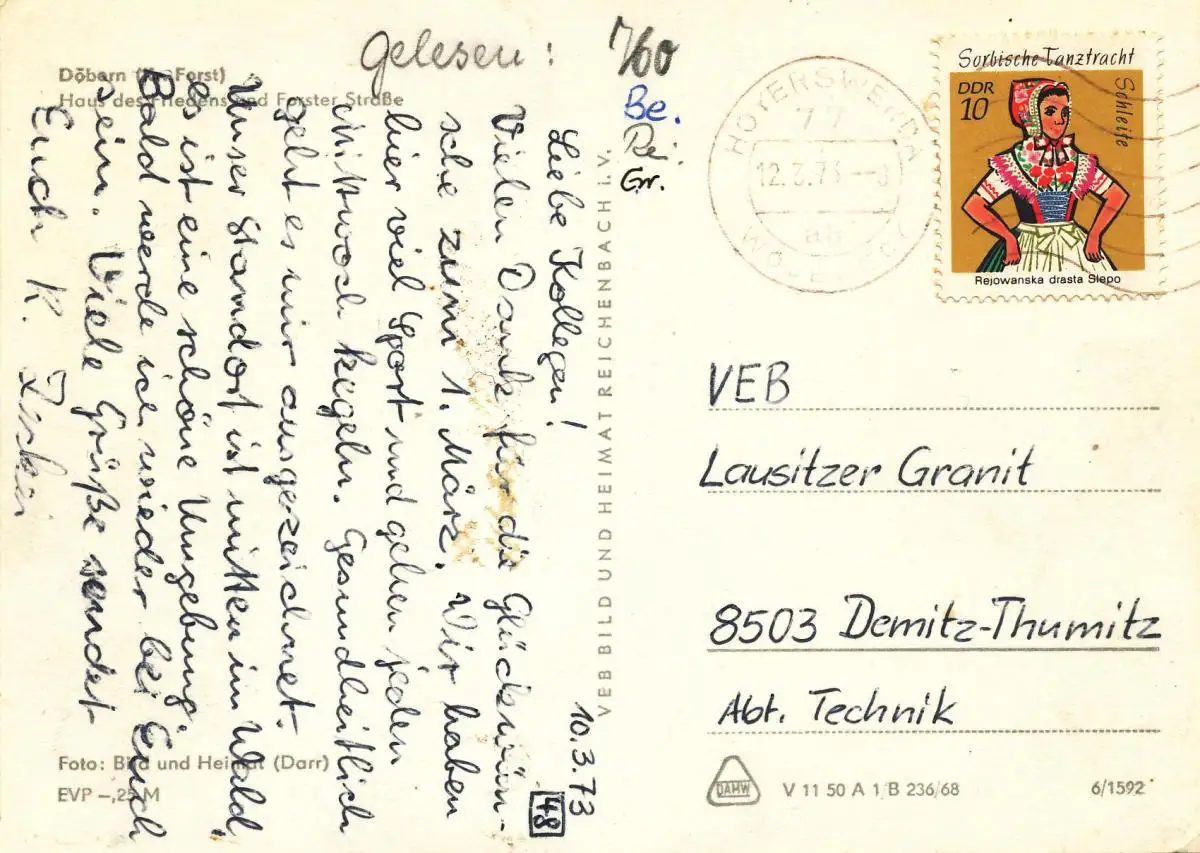 gelesen:
1/60
Be.
Gr.
Döbern (Kr. Forst)
Haus des Friedens und Forster Straße
10.3.73
48
Liebe Kollegen!
Vielen Dank für die Glückwün-
sche zum 1. März. Wir haben
hier viel Sport und gehen jeden
Mittwoch kegeln. Gesundheitlich
geht es mir ausgezeichnet.
Unser Standort ist mitten im Wald,
es ist eine schöne Umgebung.
Bald werde ich wieder bei Euch
sein. Viele Grüße sendet
Euch K.
Foto: Bild und Heimat (Darr)
EVP –,25 M
VEB BILD UND HEIMAT REICHENBACH I. V.
HOYERSWERDA
77
12.3.73 –8
ab
Sorbische Tanztracht
Schleife
DDR
10
Rejowanska drasta Slepo
VEB
Lausitzer Granit
8503 Demitz-Thumitz
Abt. Technik
DAMW
V 11 50 A 1/B 236/68
6/1592